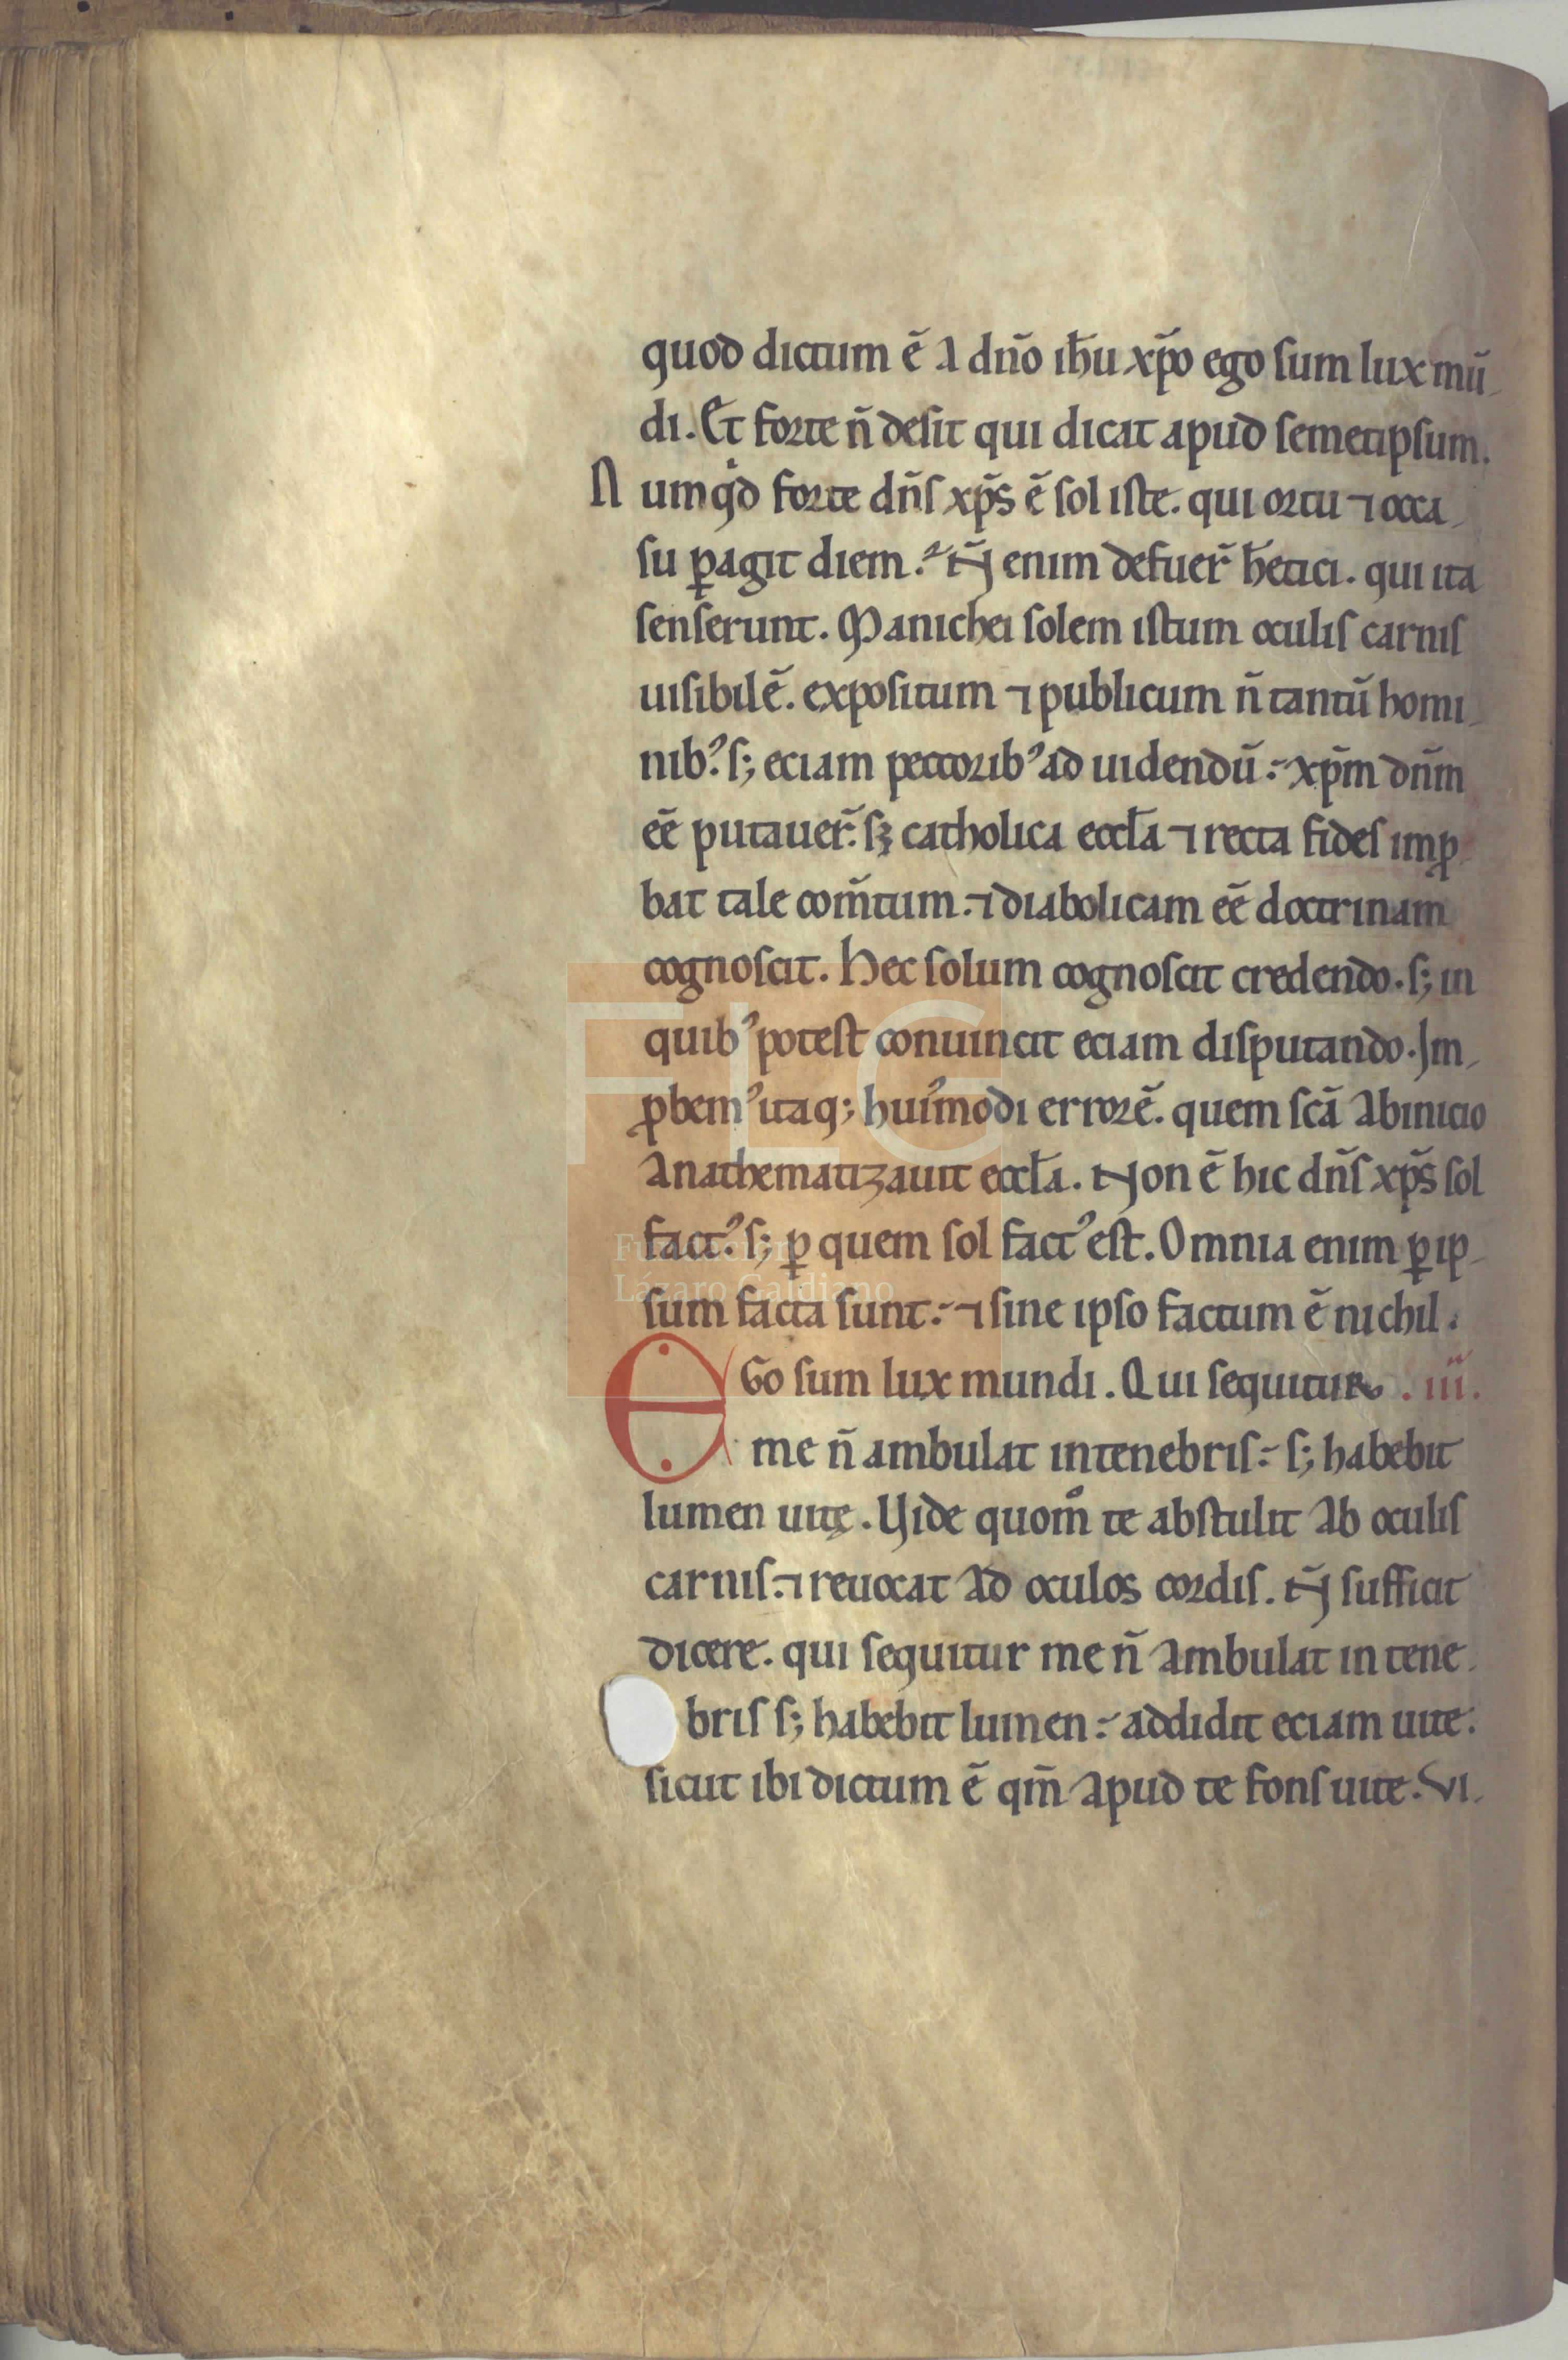 quod dictum ē a dn̄o ih̄u xp̄o ego sum lux mū
di. Et forte n̄ desit qui dicat apud semetipsum.
Numqͥd forte dn̄s xp̄s ē sol iste. qui ortu ⁊ occa
su ꝑagit diem. N̄ enim defuer̄ h̄etici. qui ita
senserunt. Manichei solem istum oculis carnis
uisibilē. expositum ⁊ publicum n̄ tantū homi
nibꝰ. s; eciam peccoribꝰ ad uidendū. xp̄m dn̄m
eē putauer̄. sꝫ catholica eccl̄a ⁊ recta fides imꝓ
bat tale com̄tum. ⁊ diabolicam eē doctrinam
cognoscit. Hec solum cognoscit credendo. s; in
quibꝰ potest conuincit eciam disputando. Im
ꝓbemꝰ itaq; huiꝰmodi errorē. quem sc̄a abinicio
anathematizauit eccl̄a. Non ē hic dn̄s xp̄s sol
factꝰ. s; ꝑ quem sol factꝰ est. Omnia enim ꝑ ip
sum facta sunt. ⁊ sine ipso factum ē nichil.
EGo sum lux mundi. Qui sequitur .iii.
me n̄ ambulat intenebris. s; habebit
lumen uitę. Vide quom̊ te abstulit ab oculis
carnis. ⁊ reuocat ad oculos cordis. N̄ sufficit
dicere. qui sequitur me n̄ ambulat in tene
bris s; habebit lumen. addidit eciam uite.
sicut ibi dictum ē qm̄ apud te fons uite. Vi
FLG
Fundación
Lázaro Galdiano